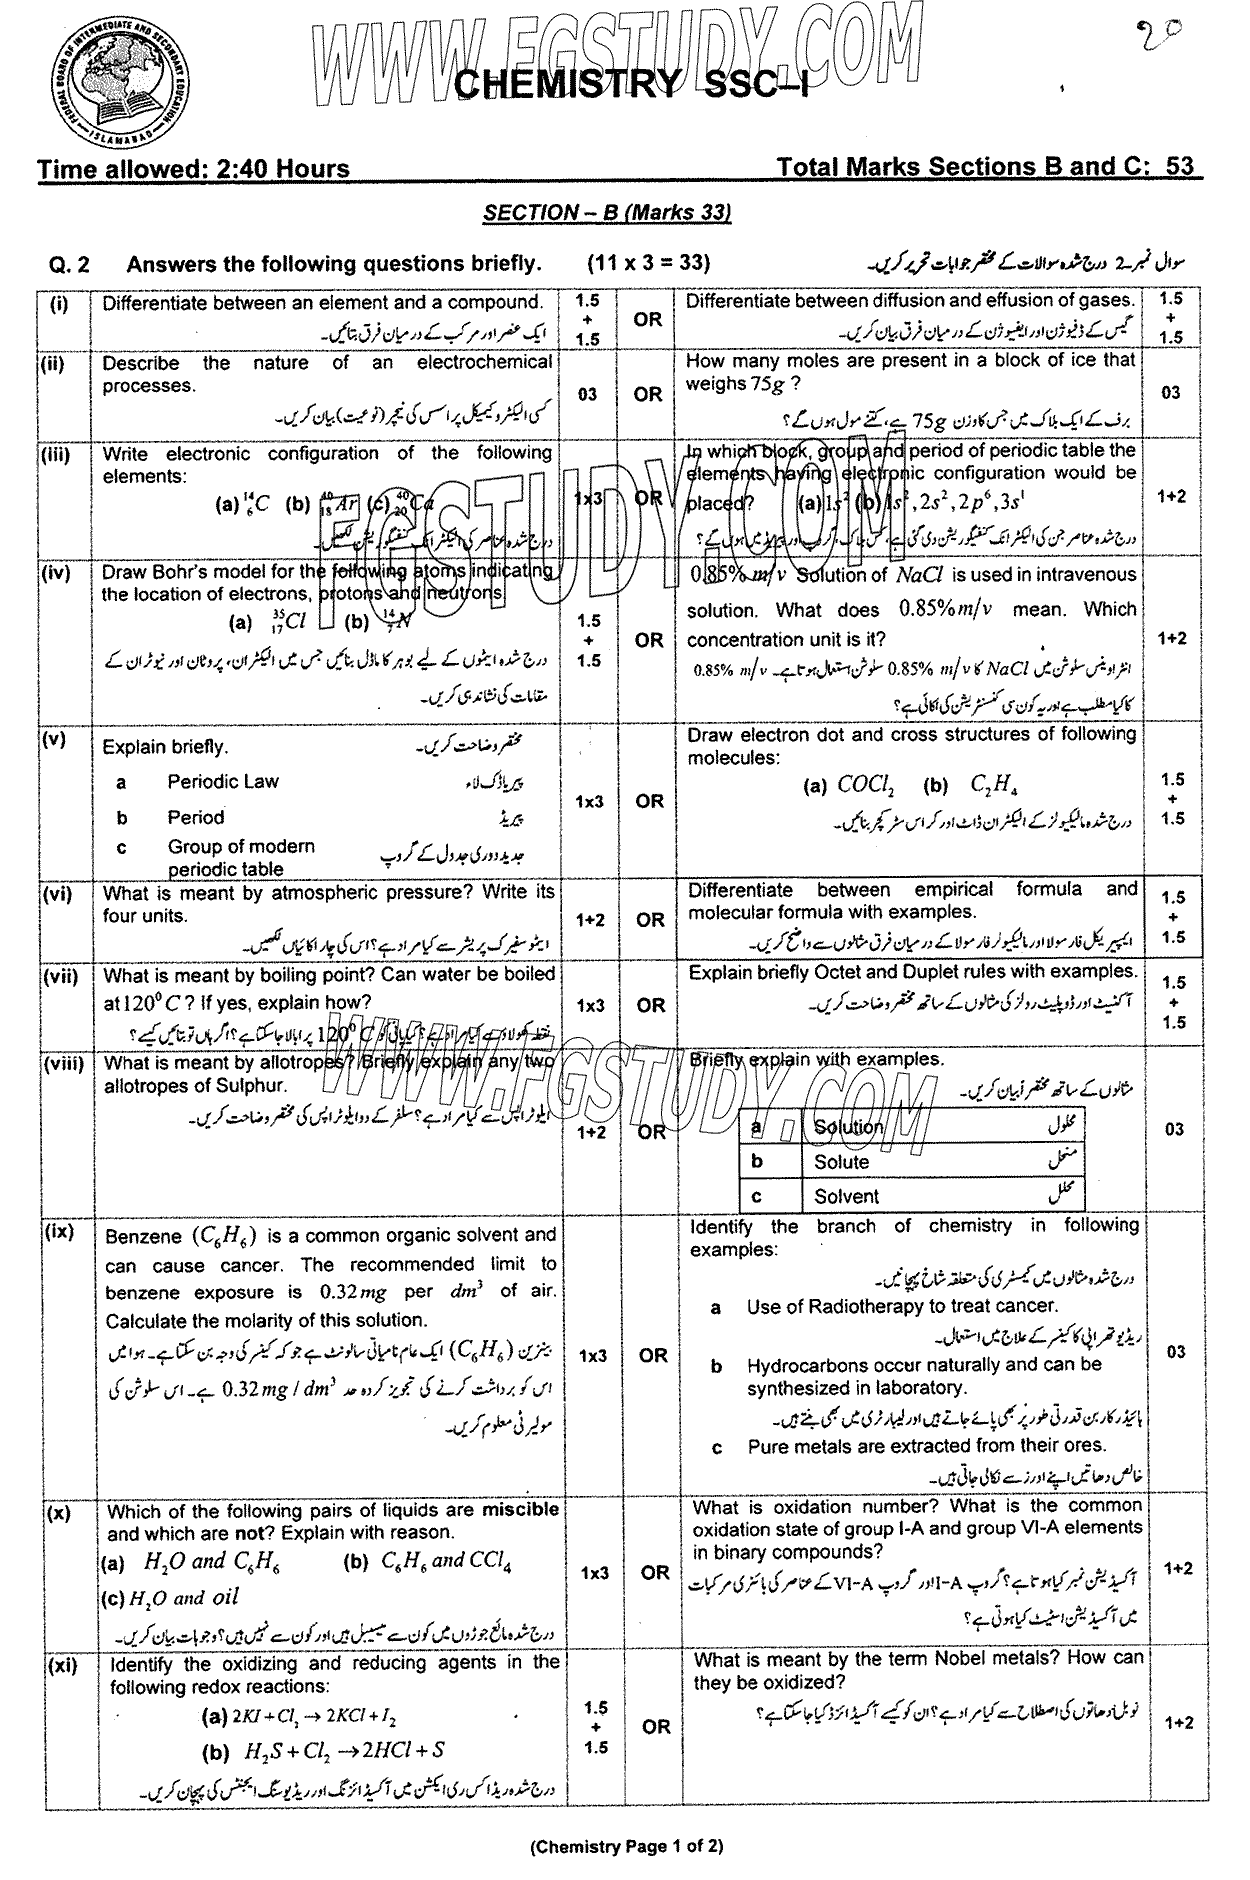 WWW.FGSTUDY.COM
20
FEDERAL BOARD OF INTERMEDIATE AND SECONDARY EDUCATION
ISLAMABAD
CHEMISTRY SSC–I
Time allowed: 2:40 Hours Total Marks Sections B and C: 53
SECTION – B (Marks 33)
Q. 2 Answers the following questions briefly. (11 x 3 = 33) سوال نمبر۔2 درج شدہ سوالات کے مختصر جوابات تحریر کریں۔
(i) Differentiate between an element and a compound.
ایک عنصر اور مرکب کے درمیان فرق بتائیں۔
1.5
+
1.5
OR
Differentiate between diffusion and effusion of gases.
گیس کے ڈفیوژن اور ایفیوژن کے درمیان فرق بیان کریں۔
1.5
+
1.5
(ii) Describe the nature of an electrochemical
processes.
کسی الیکٹروکیمیکل پراسس کی نیچر (نوعیت) بیان کریں۔
03
OR
How many moles are present in a block of ice that
weighs 75g ?
برف کے ایک بلاک میں جس کا وزن 75g ہے، کتنے مول ہوں گے؟
03
(iii) Write electronic configuration of the following
elements:
(a) ¹⁴₆C (b) ⁴⁰₁₈Ar (c) ⁴⁰₂₀Ca
درج شدہ عناصر کی الیکٹرانک کنفگریشن لکھیں۔
1x3
OR
In which block, group and period of periodic table the
elements having electronic configuration would be
placed? (a) 1s² (b) 1s², 2s², 2p⁶, 3s¹
درج شدہ عناصر جن کی الیکٹرانک کنفگریشن دی گئی ہے، کس بلاک، گروپ اور پیریڈ میں ہوں گے؟
1+2
(iv) Draw Bohr's model for the following atoms indicating
the location of electrons, protons and neutrons
(a) ³⁵₁₇Cl (b) ¹⁴₇N
درج شدہ ایٹموں کے لیے بوہر کا ماڈل بنائیں جس میں الیکٹران، پروٹان اور نیوٹران کے
مقامات کی نشاندہی کریں۔
1.5
+
1.5
OR
0.85% m/v Solution of NaCl is used in intravenous
solution. What does 0.85% m/v mean. Which
concentration unit is it?
انٹراوینس سلوشن میں NaCl کا 0.85% m/v سلوشن استعمال ہوتا ہے۔ 0.85% m/v
کا کیا مطلب ہے اور یہ کون سی کنسنٹریشن کی اکائی ہے؟
1+2
(v) Explain briefly. مختصر وضاحت کریں۔
a Periodic Law پیریاڈک لاء
b Period پیریڈ
c Group of modern
periodic table جدید دوری جدول کے گروپ
1x3
OR
Draw electron dot and cross structures of following
molecules:
(a) COCl₂ (b) C₂H₄
درج شدہ مالیکیولز کے الیکٹران ڈاٹ اور کراس سٹرکچر بنائیں۔
1.5
+
1.5
(vi) What is meant by atmospheric pressure? Write its
four units.
ایٹموسفیرک پریشر سے کیا مراد ہے؟ اس کی چار اکائیاں لکھیں۔
1+2
OR
Differentiate between empirical formula and
molecular formula with examples.
ایمپیریکل فارمولا اور مالیکیولر فارمولا کے درمیان فرق مثالوں سے واضح کریں۔
1.5
+
1.5
(vii) What is meant by boiling point? Can water be boiled
at 120⁰C ? If yes, explain how?
نقطہ کھولاؤ سے کیا مراد ہے؟ کیا پانی کو 120⁰C پر ابالا جا سکتا ہے؟ اگر ہاں تو بتائیں کیسے؟
1x3
OR
Explain briefly Octet and Duplet rules with examples.
آکٹیٹ اور ڈوپلیٹ رولز کی مثالوں کے ساتھ مختصر وضاحت کریں۔
1.5
+
1.5
(viii) What is meant by allotropes? Briefly explain any two
allotropes of Sulphur.
ایلوٹراپس سے کیا مراد ہے؟ سلفر کے دو ایلوٹراپس کی مختصر وضاحت کریں۔
1+2
OR
Briefly explain with examples.
مثالوں کے ساتھ مختصراً بیان کریں۔
a Solution محلول
b Solute منحل
c Solvent محلل
03
(ix) Benzene (C₆H₆) is a common organic solvent and
can cause cancer. The recommended limit to
benzene exposure is 0.32mg per dm³ of air.
Calculate the molarity of this solution.
بینزین (C₆H₆) ایک عام نامیاتی سالونٹ ہے جو کہ کینسر کی وجہ بن سکتا ہے۔ ہوا میں
اس کو برداشت کرنے کی تجویز کردہ حد 0.32mg / dm³ ہے۔ اس سلوشن کی
مولیرٹی معلوم کریں۔
1x3
OR
Identify the branch of chemistry in following
examples:
درج شدہ مثالوں میں کیمسٹری کی متعلقہ شاخ پہچانیں۔
a Use of Radiotherapy to treat cancer.
ریڈیو تھراپی کا کینسر کے علاج میں استعمال۔
b Hydrocarbons occur naturally and can be
synthesized in laboratory.
ہائیڈرو کاربن قدرتی طور پر بھی پائے جاتے ہیں اور لیبارٹری میں بھی بنتے ہیں۔
c Pure metals are extracted from their ores.
خالص دھاتیں اپنے اورز سے نکالی جاتی ہیں۔
03
(x) Which of the following pairs of liquids are miscible
and which are not? Explain with reason.
(a) H₂O and C₆H₆ (b) C₆H₆ and CCl₄
(c) H₂O and oil
درج شدہ مائع جوڑوں میں کون سے مسیبل ہیں اور کون سے نہیں ہیں؟ وجوہات بیان کریں۔
1x3
OR
What is oxidation number? What is the common
oxidation state of group I-A and group VI-A elements
in binary compounds?
آکسیڈیشن نمبر کیا ہوتا ہے؟ گروپ I-A اور گروپ VI-A کے عناصر کی بائنری مرکبات
میں آکسیڈیشن اسٹیٹ کیا ہوتی ہے؟
1+2
(xi) Identify the oxidizing and reducing agents in the
following redox reactions:
(a) 2KI + Cl₂ → 2KCl + I₂
(b) H₂S + Cl₂ → 2HCl + S
درج شدہ ریڈاکس ری ایکشن میں آکسیڈائزنگ اور ریڈیوسنگ ایجنٹس کی پہچان کریں۔
1.5
+
1.5
OR
What is meant by the term Nobel metals? How can
they be oxidized?
نوبل دھاتوں کی اصطلاح سے کیا مراد ہے؟ ان کو کیسے آکسیڈائزڈ کیا جا سکتا ہے؟
1+2
(Chemistry Page 1 of 2)